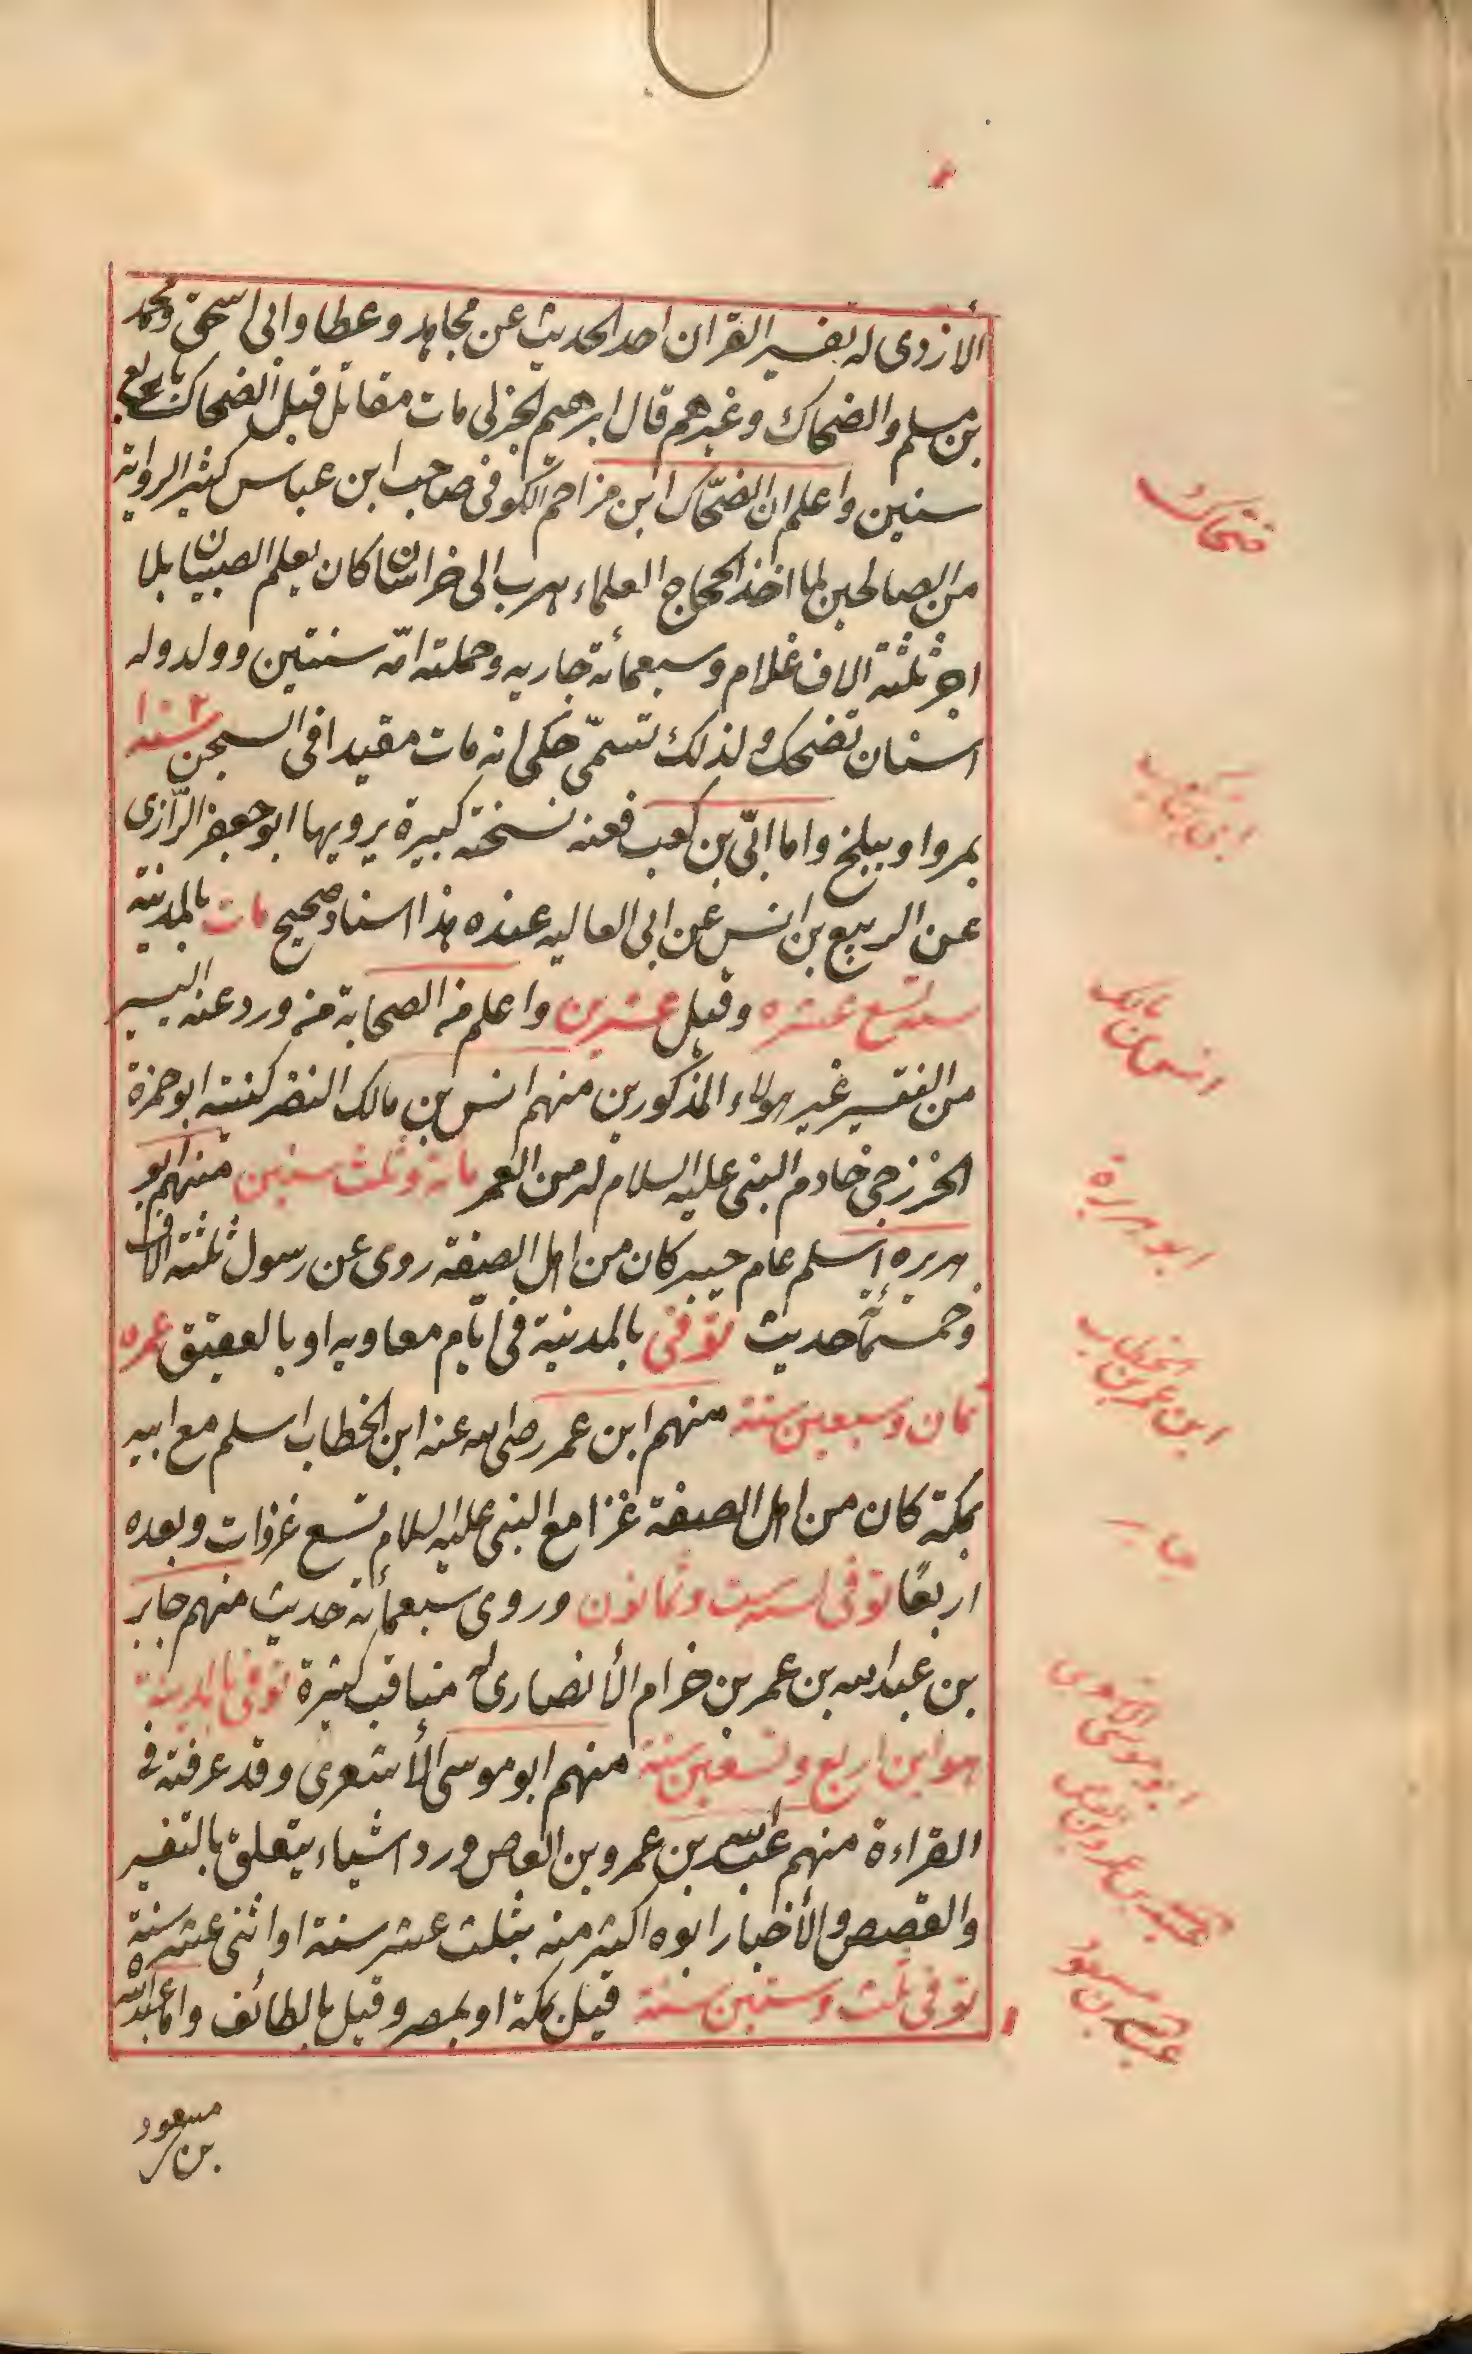 الازدى له تفسير القران احد الحديث عن مجاهد وعطا وابى اسحق ومحمد
بن مسلم والضحاك وغيرهم قال ابرهيم الجزلى مات مقاتل قبل الضحاك باربع
سنين واعلم ان الضحّاك ابن مزاحم الكوفى صاحب ابن عباس كثير الرواية
من الصالحين لما اخذ الحجاج العلماء هرب الى خراسان كان يعلم الصبيان بلا
اجر ثلثة الاف غلام وسبعمائة جاريه وحملته امّه سنتين وولد وله
اسنان تضحك ولذلك تسمّى حكى انه مات مقيدا فى السجن سنة ١٠٢
بمروا وببلخ واما ابّى بن كعب فعنه نسخة كبيرة يرويها ابو جعفر الرّازى
عن الربيع بن انس عن ابى العاليه عنده هذا اسناد صحيح مات بالمدينة
سنة تسع عشره وقيل عشرين واعلم من الصحابة من ورد عنه اليسير
من التفسير غير هولاء المذكورين منهم انس بن مالك النضر كنيته ابو حمزة
الخزرجى خادم النبى عليه السلام له من العمر مائة وثلث سنين منهم ابو
هريره اسلم عام خيبر كان من اهل الصفة روى عن رسول ثلثة الاف
وخمسمائة حديث توفى بالمدينة فى ايّام معاويه او بالعقيق عمره
ثمان وسبعين سنة منهم ابن عمر رضى الله عنه ابن الخطاب اسلم مع ابيه
بمكة كان من اهل الصفة غزا مع النبى عليه السلام تسع غزوات وبعده
اربعًا توفى لسنة ست وثمانون وروى سبعمائة حديث منهم جابر
بن عبد الله بن عمر بن خرام الأنصارى له مناقب كثيرة توفى بالمدينة
هو ابن اربع وتسعين سنة منهم ابو موسى الأشعرى وقد عرفته فى
القراءة منهم عبد الله بن عمرو بن العاص ورد اشياء يتعلق بالتفسير
والقصص والأخبار ابوه اكبر منه بثلث عشر سنة او اثنى عشره سنة
توفى ثلث وستين سنة قيل بمكة او بمصر وقيل بالطائف واما عبد الله
بن مسعود
ضحاك
ابى بن كعب
انس بن مالك
ابو هريرة
ابن عمر بن الخطاب
جابر
ابو موسى الاشعرى
عبد الله بن عمرو بن العاص
عبد الله بن مسعود